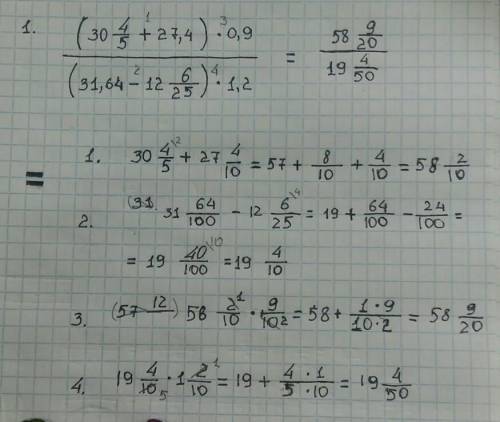 1. ((30 4/5 +¹ 27,4) ·³ 0,9) / ((31,64 −² 12 6/25) ·⁴ 1,2) = (58 9/20) / (19 4/50)
=
1. 30 4/5 ⁽² + 27 4/10 = 57 + 8/10 + 4/10 = 58 2/10
2. 31 64/100 − 12 6/25 ⁽⁴ = 19 + 64/100 − 24/100 =
= 19 40/100 ⁽¹⁰ = 19 4/10
3. 58 2/10 ¹ · 9/10 ₂ = 58 + 1·9/10·2 = 58 9/20
4. 19 4/10 ₅ · 1 2/10 ¹ = 19 + 4·1/5·10 = 19 4/50